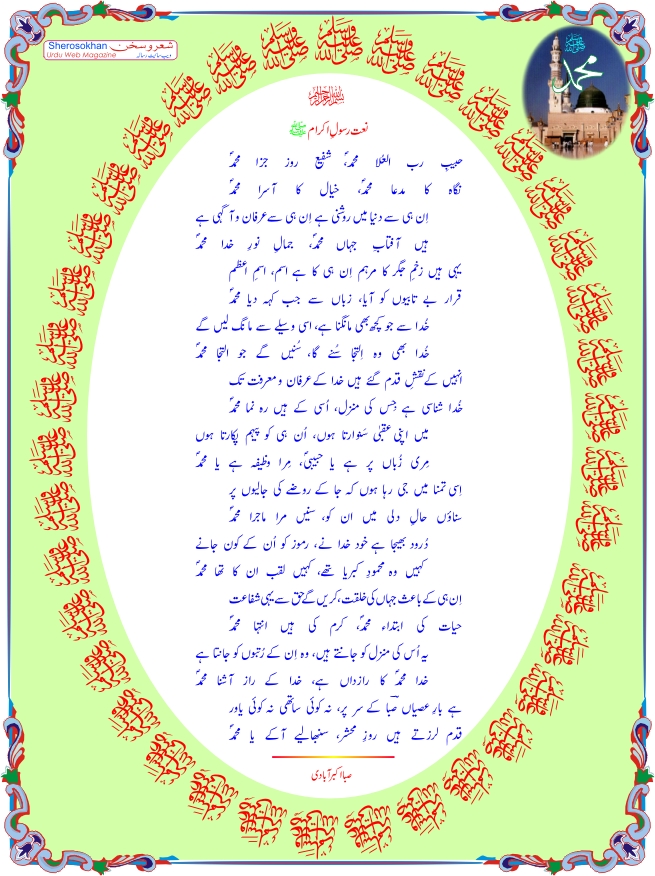 Sherosokhan شعر و سخن
Urdu Web Magazine ویب سائیٹ رسالہ
محمد ﷺ
بسم اللہ الرحمن الرحیم
نعت رسولِ اکرام ﷺ
حبیبِ رب العُلا محمدؐ، شفیعِ روزِ جزا محمدؐ
نگاہ کا مدعا محمدؐ، خیال کا آسرا محمدؐ
اِن ہی سے دنیا میں روشنی ہے اِن ہی سے عرفان و آگہی ہے
ہیں آفتابِ جہاں محمدؐ، جمالِ نورِ خدا محمدؐ
یہی ہیں زخمِ جگر کا مرہم اِن ہی کا ہے اسم، اسمِ اعظم
قرار بے تابیوں کو آیا، زباں سے جب کہہ دیا محمدؐ
خُدا سے جو کچھ بھی مانگنا ہے، اسی وسیلے سے مانگ لیں گے
خُدا بھی وہ اِلتجا سُنے گا، سُنیں گے جو التجا محمدؐ
انہیں کے نقشِ قدم گئے ہیں خدا کے عرفان و معرفت تک
خُدا شناسی ہے جِس کی منزل، اُسی کے ہیں رہ نما محمدؐ
میں اپنی عقبیٰ سَنوارتا ہوں، اُن ہی کو پیہم پکارتا ہوں
مِری زُباں پر ہے یا حبیبیؐ، مِرا وظیفہ ہے یا محمدؐ
اِسی تمنا میں جی رہا ہوں کہ جا کے روضے کی جالیوں پر
سناؤں حالِ دلی میں ان کو، سنیں مرا ماجرا محمدؐ
دُرود بھیجا ہے خود خدا نے، رموز کو اُن کے کون جانے
کہیں وہ محمودِ کبریا تھے، کہیں لقب ان کا تھا محمدؐ
اِن ہی کے باعث جہاں کی خلقت، کریں گے حق سے یہی شفاعت
حیات کی ابتداء محمدؐ، کرم کی ہیں انتہا محمدؐ
یہ اُس کی منزل کو جانتے ہیں، وہ اِن کے رُتبوں کو جانتا ہے
خدا محمدؐ کا رازداں ہے، خدا کے راز آشنا محمدؐ
ہے بارِ عصیاں صباؔ کے سر پر، نہ کوئی ساتھی نہ کوئی یاور
قدم لرزتے ہیں روزِ محشر، سنبھالیے آکے یا محمدؐ
صبا اکبر آبادی